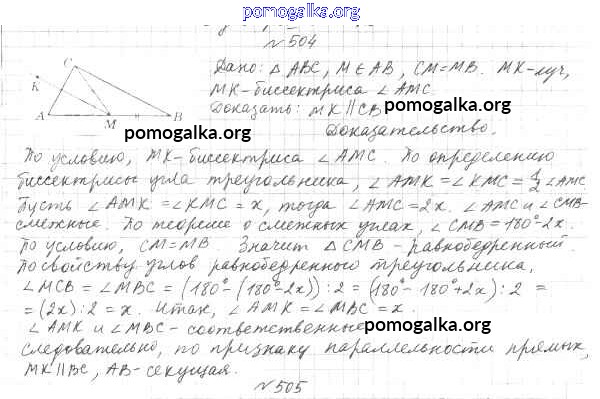 pomogalka.org
№504
Дано: △ ABC, M ∈ AB, CM=MB. MK-луч,
MK-биссектриса ∠AMC.
Доказать: MK ∥ CB pomogalka.org
C
K
A M B
pomogalka.org
Доказательство.
По условию, MK-биссектриса ∠AMC. По определению
биссектрисы угла треугольника, ∠AMK=∠KMC=½∠AMC
Пусть ∠AMK=∠KMC=x, тогда ∠AMC=2x. ∠AMC и ∠CMB-
смежные. По теореме о смежных углах, ∠CMB=180°-2x.
По условию, CM=MB. Значит △CMB-равнобедренный.
По свойству углов равнобедренного треугольника,
∠MCB=∠MBC=(180°-(180°-2x)):2=(180°-180°+2x):2=
=(2x):2=x. Итак, ∠AMK=∠MBC=x.
∠AMK и ∠MBC-соответственные pomogalka.org
следовательно, по признаку параллельности прямых,
MK∥BC, AB-секущая.
№505